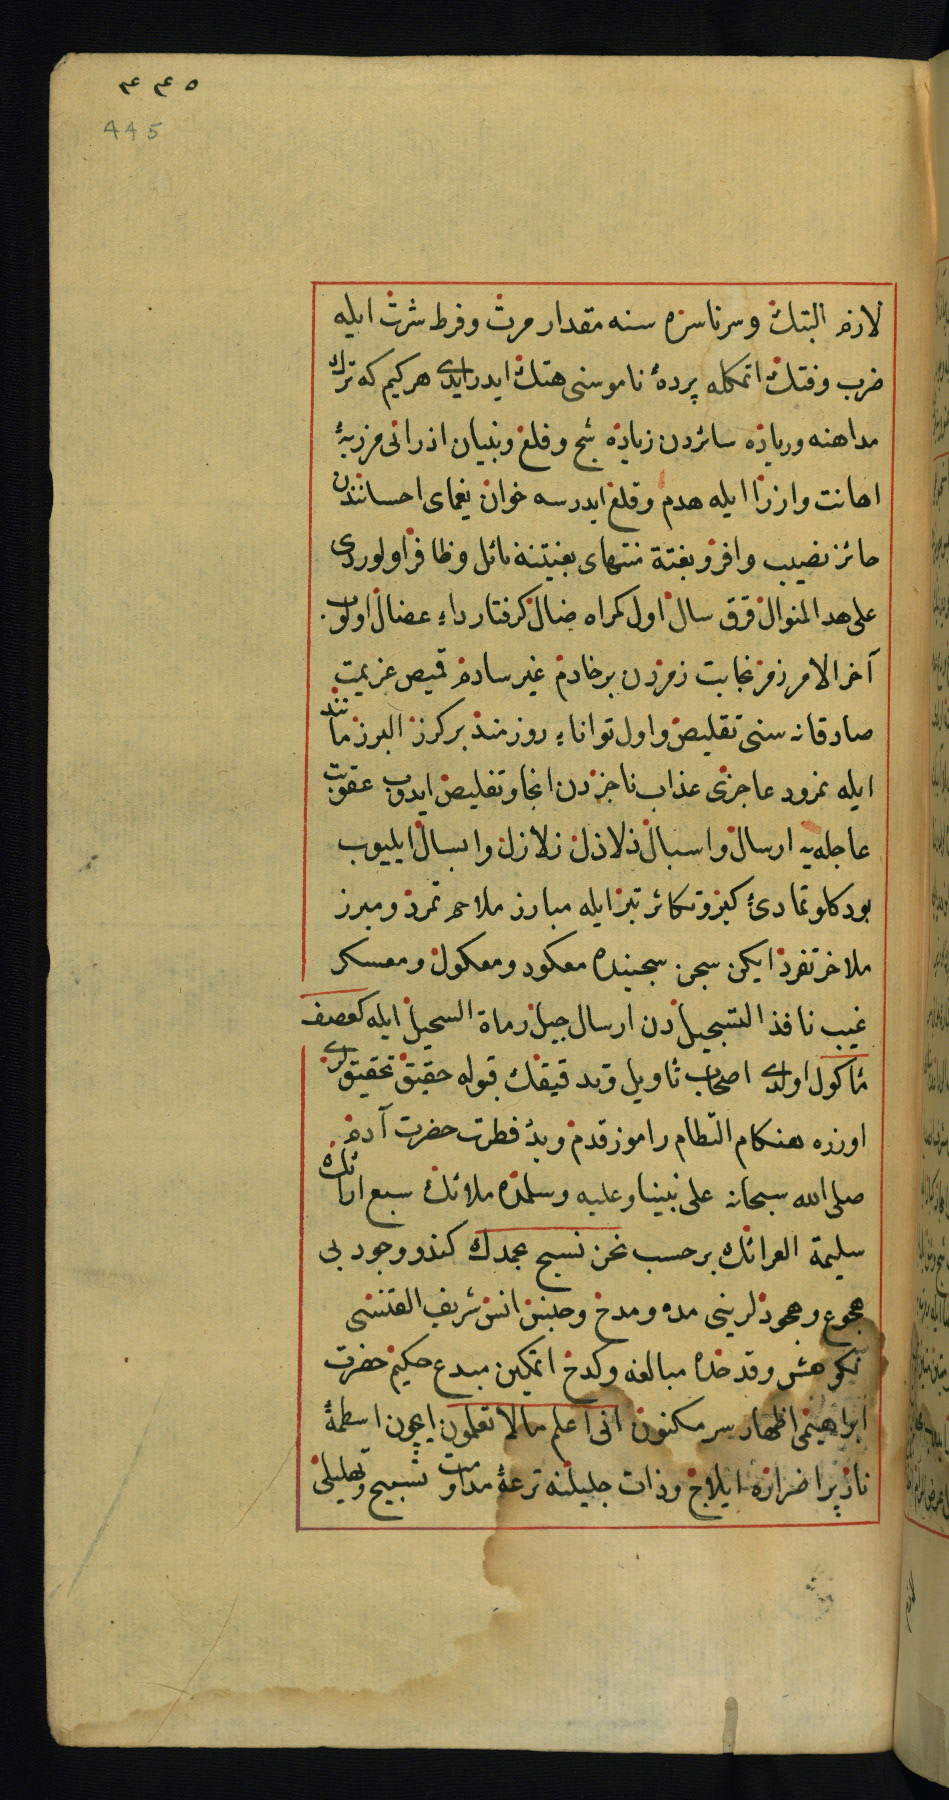 ٤٤٥
445
لازم البتك وسرناسزه سنه مقدار مرث وفرط شرث ايله
ضرب وفتك اتمكله پردهٔ ناموسنى هتك ايدر ايدى هر كيم كه ترك
مداهنه وريازه سائردن زياده شح وقلغ وبنيان اذرانى مرزبهٔ
اهانت وازرا ايله هدم وقلغ ايدرسه خوان يغماى احسانندن
حائز نصيب وافر وبغتة منتهاى بغيتنه نائل وظافر اولوردى
على هدا المنوال قرق سال اول كمراه ضال كرفتار داء عضال اولوب
آخر الامر زمر نجابت زمرزن بر خادم غير سادم قميص عزيمت
صادقانه سنى تقليص واول تواناء روزمند بر كرز البرز مانند
ايله نمرود عاجزى عذاب ناجزدن انجا وتخليص ايدوب عقوبت
عاجله يه ارسال واسبال ذلاذل زلازل وابسال ايليوب
بودكلو تمادئ كبر وتكاثر تبز ايله مبارز ملاحم تمرد ومبرز
ملاخر تفرد ايكن سجن سجينده معكود ومعكول ومعسكر
غيب نافذ التسجيلدن ارسال جيل رماة السجيل ايله كعصف
مأكول اولدى اصحاب تأويل وتدقيقك قبوله حقيق تحقيقلرى
اوزره هنكام التطام راموز قدم وبدٔ فطرت حضرت آدم
صلى الله سبحانه على نبينا وعليه وسلمده ملائك سبع ارائك
سليمة العرائك بر حسب نحن نسبح بحمدك كندو وجود بى
هجوع وهجودلرينى مده ومدخ وجنس انس شريف القنسى
نكوهش وقدحده مبالغه وكدخ اتمكين مبدع حكيم حضرت
ابراهيمى اظهار سر مكنون انى اعلم مالا تعلمون ايچون اسطمهٔ
ناز پر اضرازه ايلاج وذات جليلنه ترعهٔ مداومت تسبيح وتهليلى